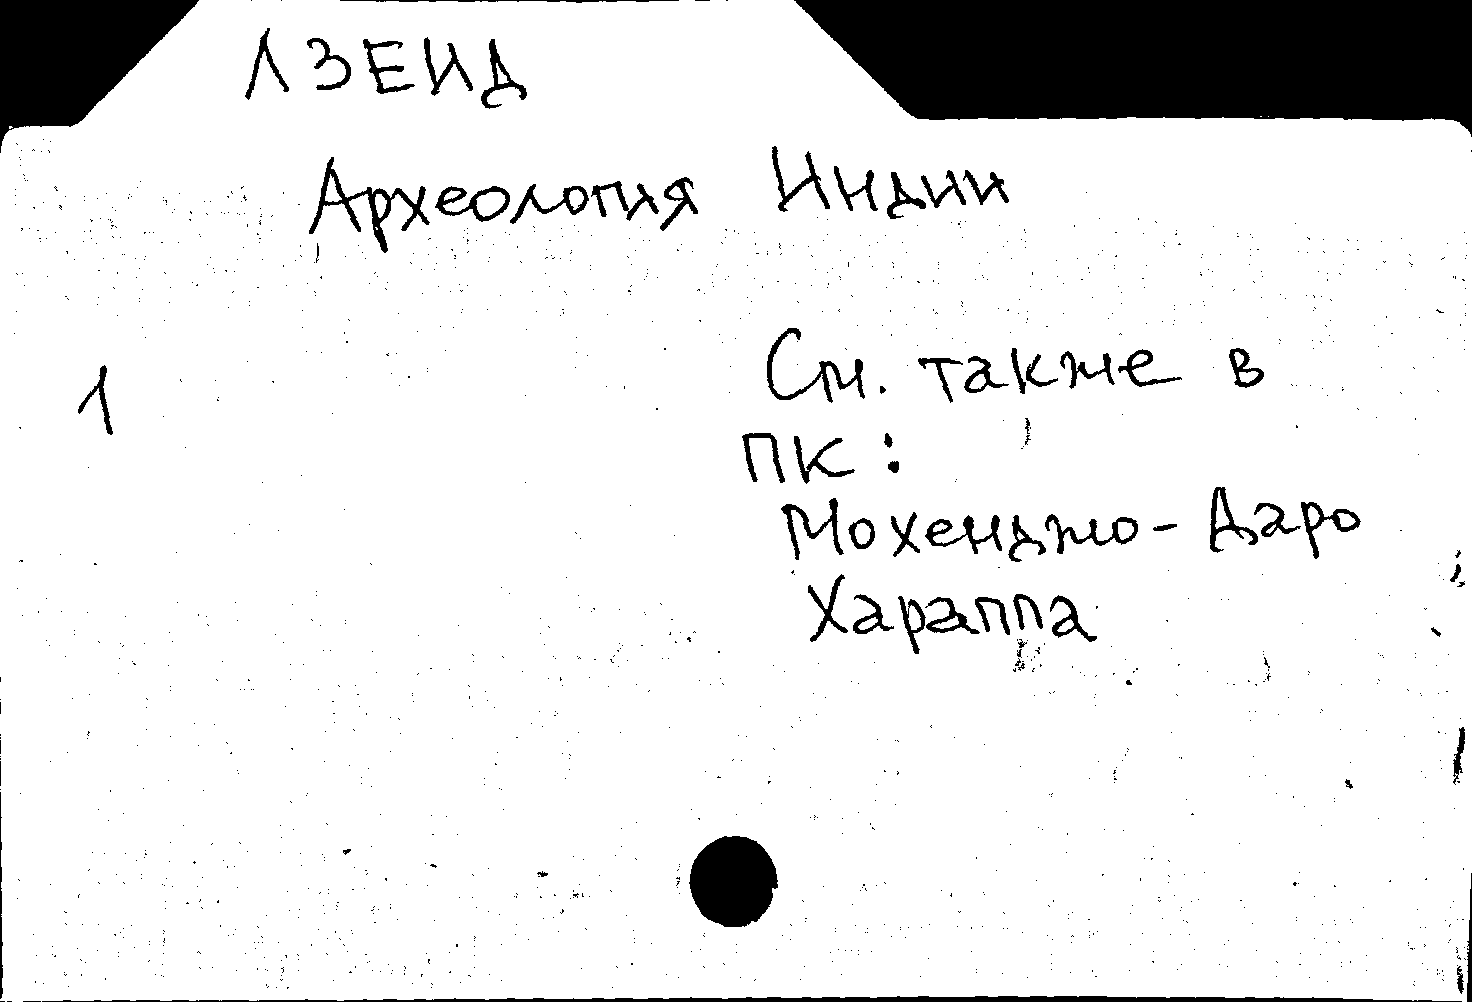 ΛЗЕИД
Археология Индии
1
См. также в
ПК:
Мохенджо-Даро
Хараппа